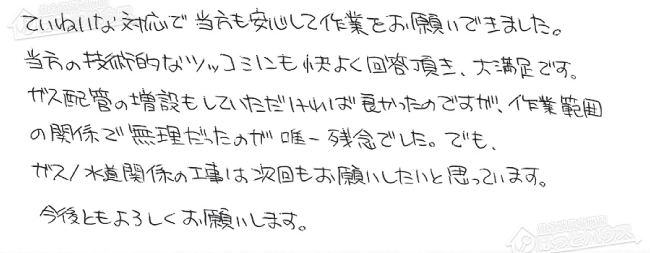 ていねいな対応で当方も安心して作業をお願いできました。
当方の技術的なツッコミにも快よく回答頂き、大満足です。
ガス配管の増設もしていただければ良かったのですが、作業範囲
の関係で無理だったのが唯一残念でした。でも、
ガス/水道関係の工事は次回もお願いしたいと思っています。
今後ともよろしくお願いします。